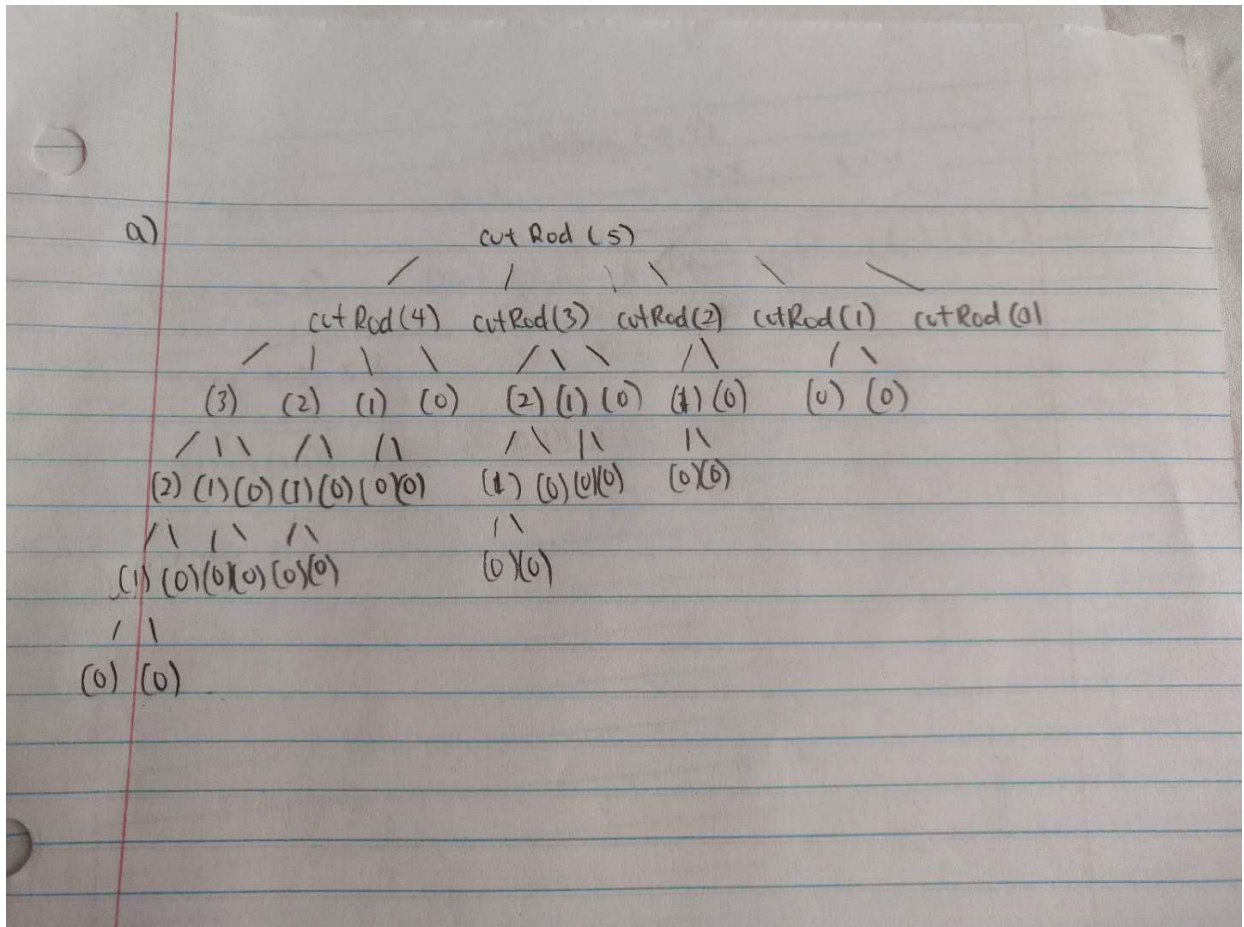 a) cutRod (5)
cutRod(4) cutRod(3) cutRod(2) cutRod(1) cutRod(0)
(3) (2) (1) (0) (2) (1) (0) (1) (0) (0) (0)
(2) (1) (0) (1) (0) (0)(0) (1) (0) (0)(0) (0)(0)
(1) (0) (0)(0) (0)(0) (0)(0)
(0) (0)